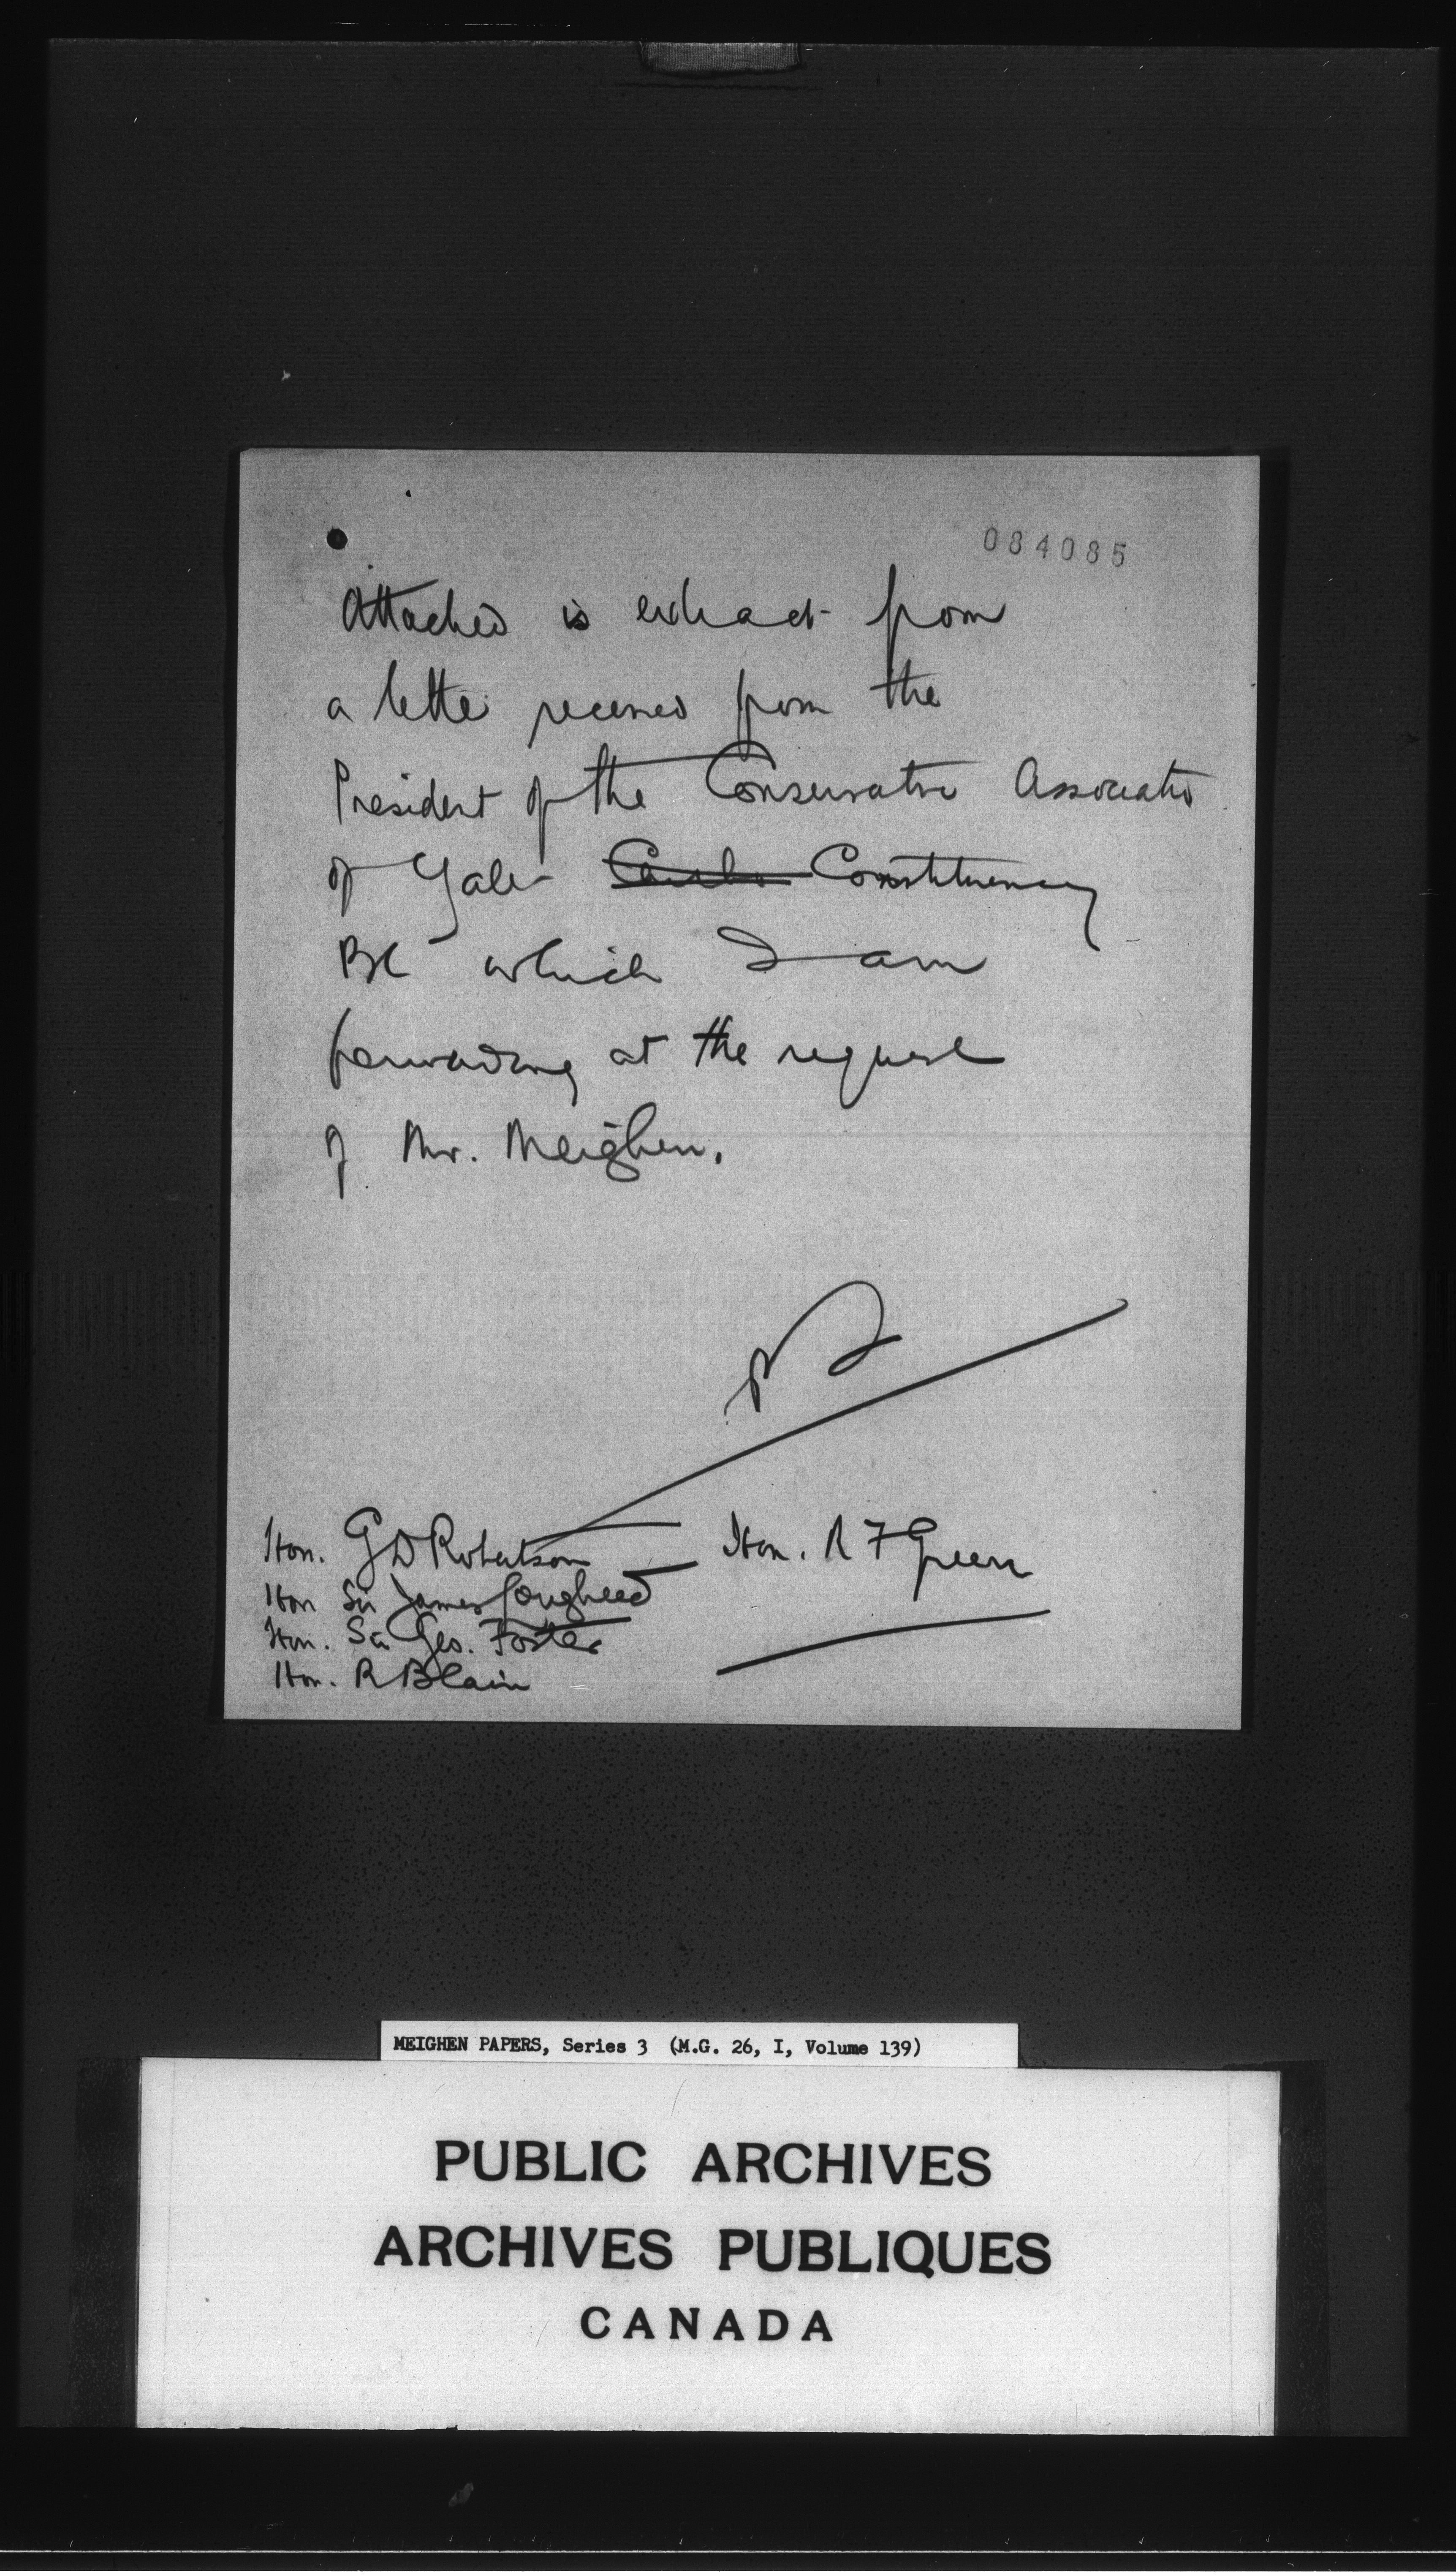 084085
Attached is extract from
a letter received from the
President of the Conservative Association
of Yale Constituency
BC which I am
forwarding at the request
of Mr. Meighen.
Hon. G D Robertson
Hon. R F Green
Hon Sir James Lougheed
Hon. Sir Geo. Foster
Hon. R Blain
MEIGHEN PAPERS, Series 3 (M.G. 26, I, Volume 139)
PUBLIC ARCHIVES
ARCHIVES PUBLIQUES
CANADA